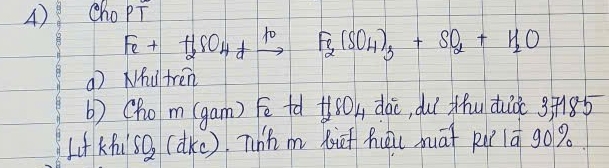 4) Cho PT
Fe + H₂SO₄ đ →(t⁰) Fe₂(SO₄)₃ + SO₂ + H₂O
a) Như trên
b) Cho m (gam) Fe td H₂SO₄ đặc, dư thu được 3,7185
lít khí SO₂ (đkc). Tính m biết hiệu suất pư là 90%.